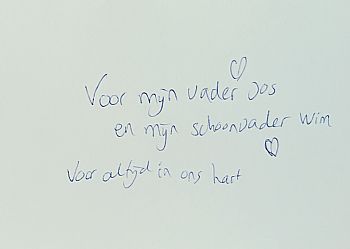 Voor mijn vader Jos
en mijn schoonvader Wim
Voor altijd in ons hart